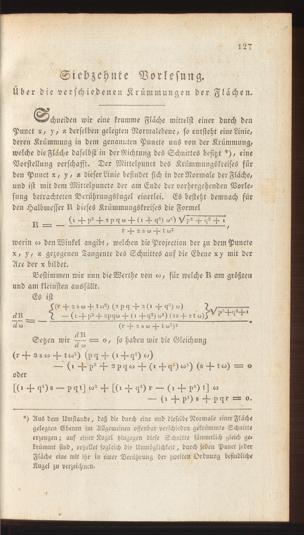 127
Siebzehnte Vorlesung.
Über die verschiedenen Krümmungen der Flächen.
Schneiden wir eine krumme Fläche mittelst einer durch den
Punct x, y, z derselben gelegten Normalebene, so entsteht eine Linie,
deren Krümmung in dem genannten Puncte uns von der Krümmung,
welche die Fläche daselbst in der Richtung des Schnittes besitzt *), eine
Vorstellung verschafft. Der Mittelpunct des Krümmungskreises für
den Punct x, y, z dieser Linie befindet sich in der Normale der Fläche,
und ist mit dem Mittelpuncte der am Ende der vorhergehenden Vorle-
sung betrachteten Berührungskugel einerlei. Es besteht demnach für
den Halbmesser R dieses Krümmungskreises die Formel
R = — (1 + p² + 2pqω + (1 + q²) ω²) √p² + q² + 1 / r + 2sω + tω² ,
worin ω den Winkel angibt, welchen die Projection der zu dem Puncte
x, y, z gezogenen Tangente des Schnittes auf die Ebene xy mit der
Axe der x bildet.
Bestimmen wir nun die Werthe von ω, für welche R am größten
und am kleinsten ausfällt.
Es ist
dR/dω = — {(r + 2sω + tω²) (2pq + 2(1 + q²) ω) — (1 + p² + 2pqω + (1 + q²) ω²) (2s + 2tω)} √p² + q² + 1 / (r + 2sω + tω²)² .
Setzen wir dR/dω = 0, so haben wir die Gleichung
(r + 2sω + tω²) (pq + (1 + q²) ω)
— (1 + p² + 2pqω + (1 + q²) ω²) (s + tω) = 0
oder
[(1 + q²) s — pqt] ω² + [(1 + q²) r — (1 + p²) t] ω
— (1 + p²) s + pqr = 0.
*) Aus dem Umstande, daß die durch eine und dieselbe Normale einer Fläche
gelegten Ebenen im Allgemeinen offenbar verschieden gekrümmte Schnitte
erzeugen; auf einer Kugel hingegen diese Schnitte sämmtlich gleich ge-
krümmt sind, erhellet sogleich die Unmöglichkeit, durch jeden Punct jeder
Fläche eine mit ihr in einer Berührung der zweiten Ordnung befindliche
Kugel zu verzeichnen.